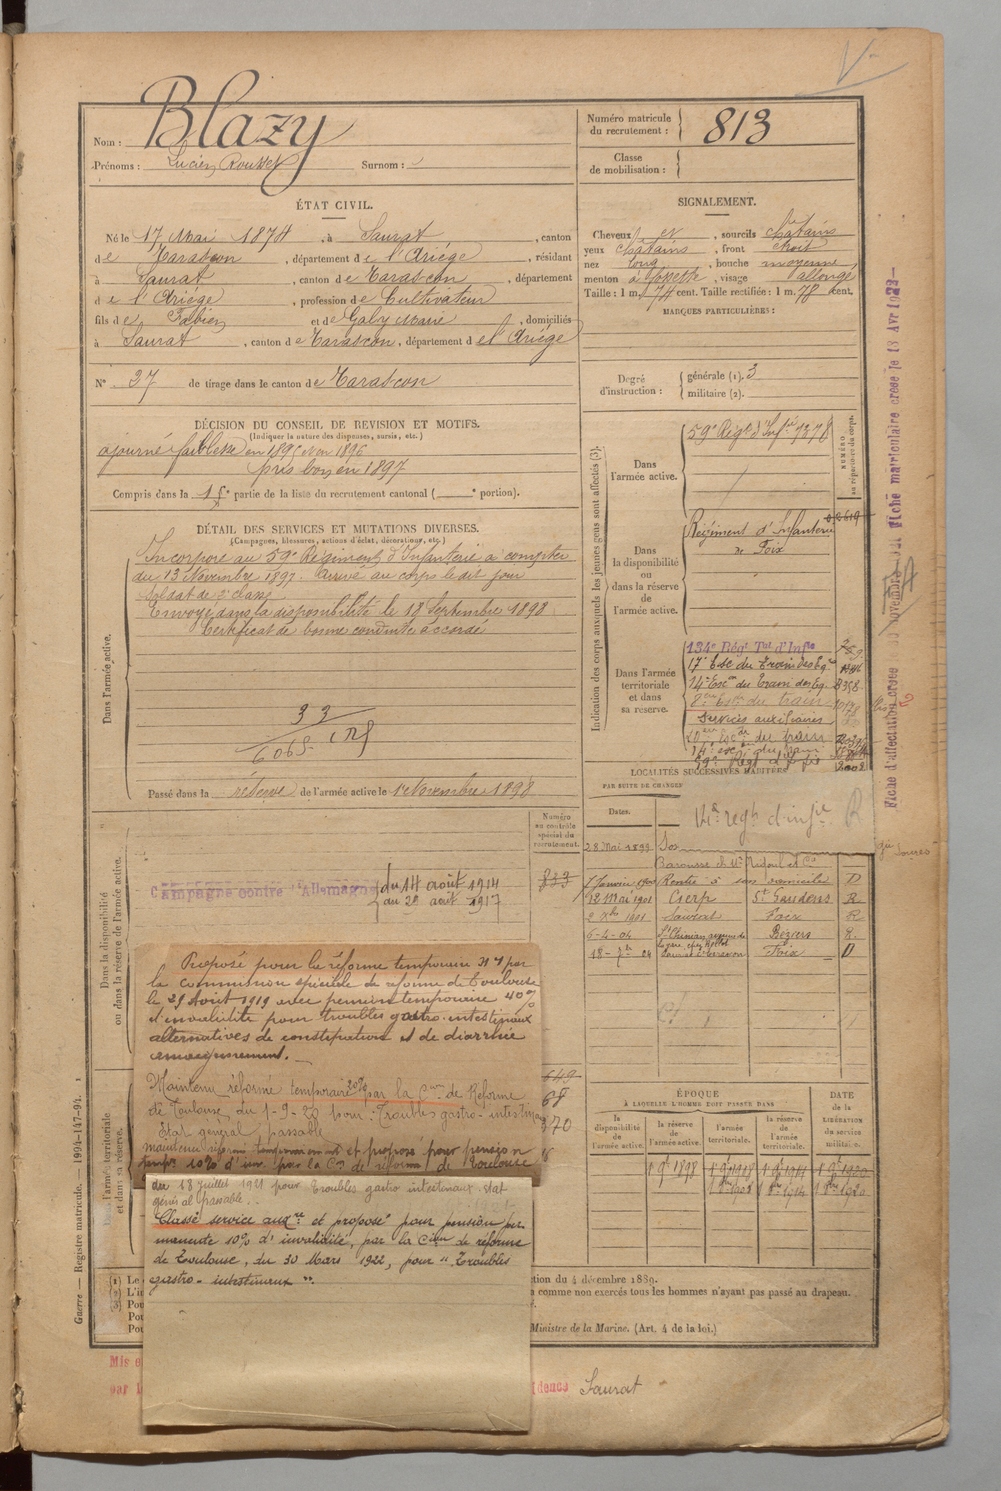 Nom : Blazy
Prénoms : Lucien Rousset Surnom :
Numéro matricule du recrutement : 813
Classe de mobilisation :
ÉTAT CIVIL.
Né le 17 Mai 1874, à Saurat, canton
de Tarascon, département de l'Ariège, résidant
à Saurat, canton de Tarascon, département
de l'Ariège, profession de Cultivateur
fils de Fabien et de Galy Marie, domiciliés
à Saurat, canton de Tarascon, département de l'Ariège
N° 37 de tirage dans le canton de Tarascon
SIGNALEMENT.
Cheveux et, sourcils châtains
yeux châtains, front étroit
nez long, bouche moyenne
menton à fossette, visage allongé
Taille : 1 m. 74 cent. Taille rectifiée : 1 m. 78 cent.
MARQUES PARTICULIÈRES :
Degré d'instruction : générale (1). 3
militaire (2).
DÉCISION DU CONSEIL DE REVISION ET MOTIFS.
(Indiquer la nature des dispenses, sursis, etc.)
ajourné faiblesse en 1895 et en 1896
pris bon en 1897
Compris dans la 1e partie de la liste du recrutement cantonal ( portion).
DÉTAIL DES SERVICES ET MUTATIONS DIVERSES.
(Campagnes, blessures, actions d'éclat, décorations, etc.)
Dans l'armée active.
Incorporé au 59e Régiment d'Infanterie à compter
du 13 Novembre 1897. Arrivé au corps le dit jour
Soldat de 2e classe
Envoyé dans la disponibilité le 18 Septembre 1898
Certificat de bonne conduite accordé
33
6065
Passé dans la réserve de l'armée active le 1er Novembre 1898
Indication des corps auxquels les jeunes gens sont affectés (3).
NUMÉRO au répertoire du corps.
Dans l'armée active.
59e Régt d'Infie 7378
Dans la disponibilité ou dans la réserve de l'armée active.
Régiment d'Infanterie 2619
de Foix
Dans l'armée territoriale et dans sa réserve.
134e Régt Tal d'Infie
17e Esc du Train des Eq.
14e Escon du Train des Eq. 8358
Services auxiliaires
LOCALITÉS SUCCESSIVES HABITÉES
PAR SUITE DE CHANGEM
Dates.
regt d'infie R
28 Mai 1899
Barousse
7 Janvier 1900 Rentré à son domicile D
12 Mai 1901 Cierp St Gaudens R
2 Xbre 1901 Saurat Foix R
6-4-04 St Chinian Béziers R.
18-7bre 04 Foix D
Numéro au contrôle spécial du recrutement.
833
Dans la disponibilité ou dans la réserve de l'armée active.
Campagne contre l'Allemagne du 14 août 1914
au 2 août 1917
Proposé pour la réforme temporaire N° 1 par
la commission spéciale de réforme de Toulouse
le 29 Août 1919 avec pension temporaire 40%
d'invalidité pour troubles gastro-intestinaux
alternatives de constipation et de diarrhée
amaigrissement.
Maintenu réformé temporaire 20% par la Con de Réforme
de Toulouse, du 1-9-20 pour : Troubles gastro-intestinaux
État général passable
maintenu réformé temporairement et proposé pour pension
tempre 10% d'inv. par la Con de réforme de Toulouse
du 18 juillet 1921 pour Troubles gastro intestinaux. état
général passable.
Classé service auxre et proposé pour pension per
manente 10% d'invalidité, par la Con de réforme
de Toulouse, du 30 Mars 1922, pour "Troubles
gastro-intestinaux".
649
68
370
Dans l'armée territoriale et dans sa réserve.
ÉPOQUE
À LAQUELLE L'HOMME DOIT PASSER DANS
la disponibilité de l'armée active.
la réserve de l'armée active.
l'armée territoriale.
la réserve de l'armée territoriale.
DATE de la LIBÉRATION du service militaire.
1 9bre 1898
tion du 4 décembre 1889.
comme non exercés tous les hommes n'ayant pas passé au drapeau.
Ministre de la Marine. (Art. 4 de la loi.)
dence Saurat
Guerre — Registre matricule. — 1994-147-94.
Fiche matriculaire créée le 18 Avr 1922